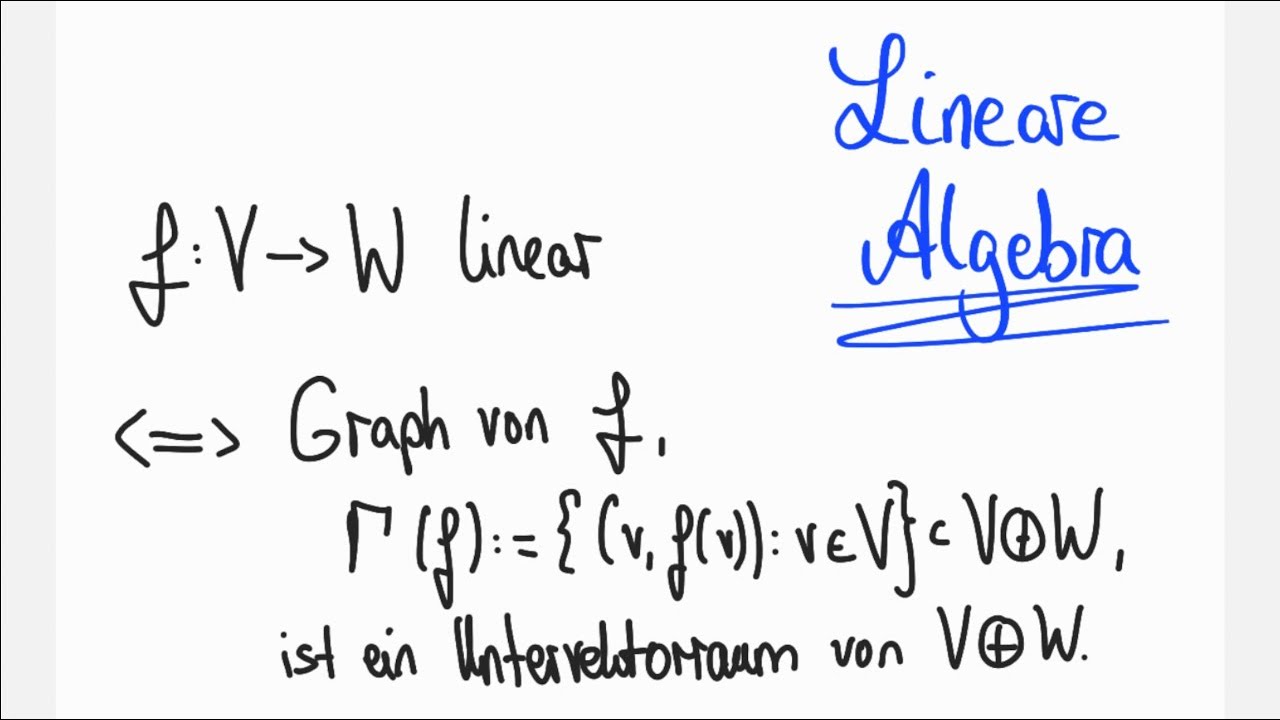 Lineare
Algebra
f: V → W linear
<=> Graph von f,
Γ(f) := {(v, f(v)): v ∈ V} ⊂ V⊕W,
ist ein Untervektorraum von V⊕W.